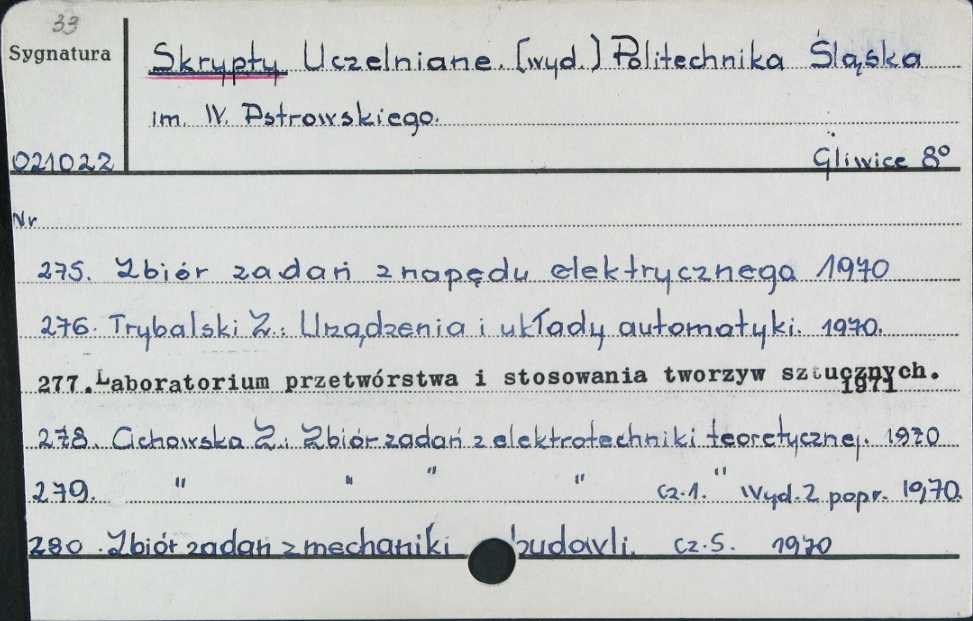 33
Sygnatura
Skrypty Uczelniane. [wyd.] Politechnika Śląska
im. W. Pstrowskiego.
021022
Gliwice 8°
Nr
275. Zbiór zadań z napędu elektrycznego 1970
276. Trybalski Z.: Urządzenia i układy automatyki. 1970.
277. Laboratorium przetwórstwa i stosowania tworzyw sztucznych.
1971
278. Cichowska Z.: Zbiór zadań z elektrotechniki teoretycznej. 1970
279. " " " " " cz.1. Wyd.2 popr. 1970.
280. Zbiór zadań z mechaniki budowli. cz.5. 1970